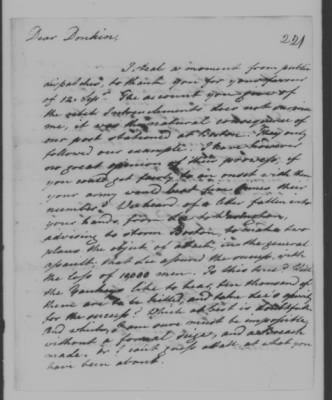 Dear Donkin, 221
I steal a moment from public
dispatches, to thank you for your favour
of 12. Sepr. The account you gave of
the rebel Intrenchments does not surprise
me, it was the natural consequence of
our post stationed at Boston. They only
followed our example. I have however
no great opinion of their prowess, if
you could get fairly to an onset with them
your army woud beat five times their
number. We heard of a letter fallen into
your hands, from
advising to storm Boston,
plans the objects of attack, in the general
assault, that he assured the success, with
the loss of 19000 men. Is this true? Will
the Yankies like to hear, ten thousand of
them are to be killed, and take
for the success? Which at best is doubtfull
And which, I am sure must be impossible
without a formal siege, and a Breach
made, or I can't guess attall, at what you
have been about.